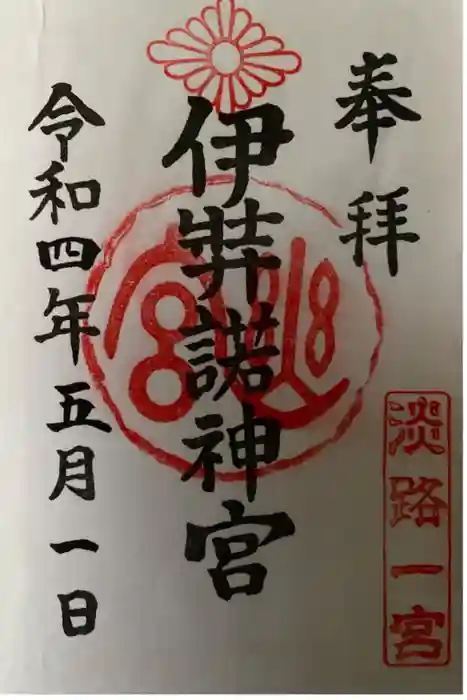 奉拝
伊弉諾神宮
令和四年五月一日
淡路一宮